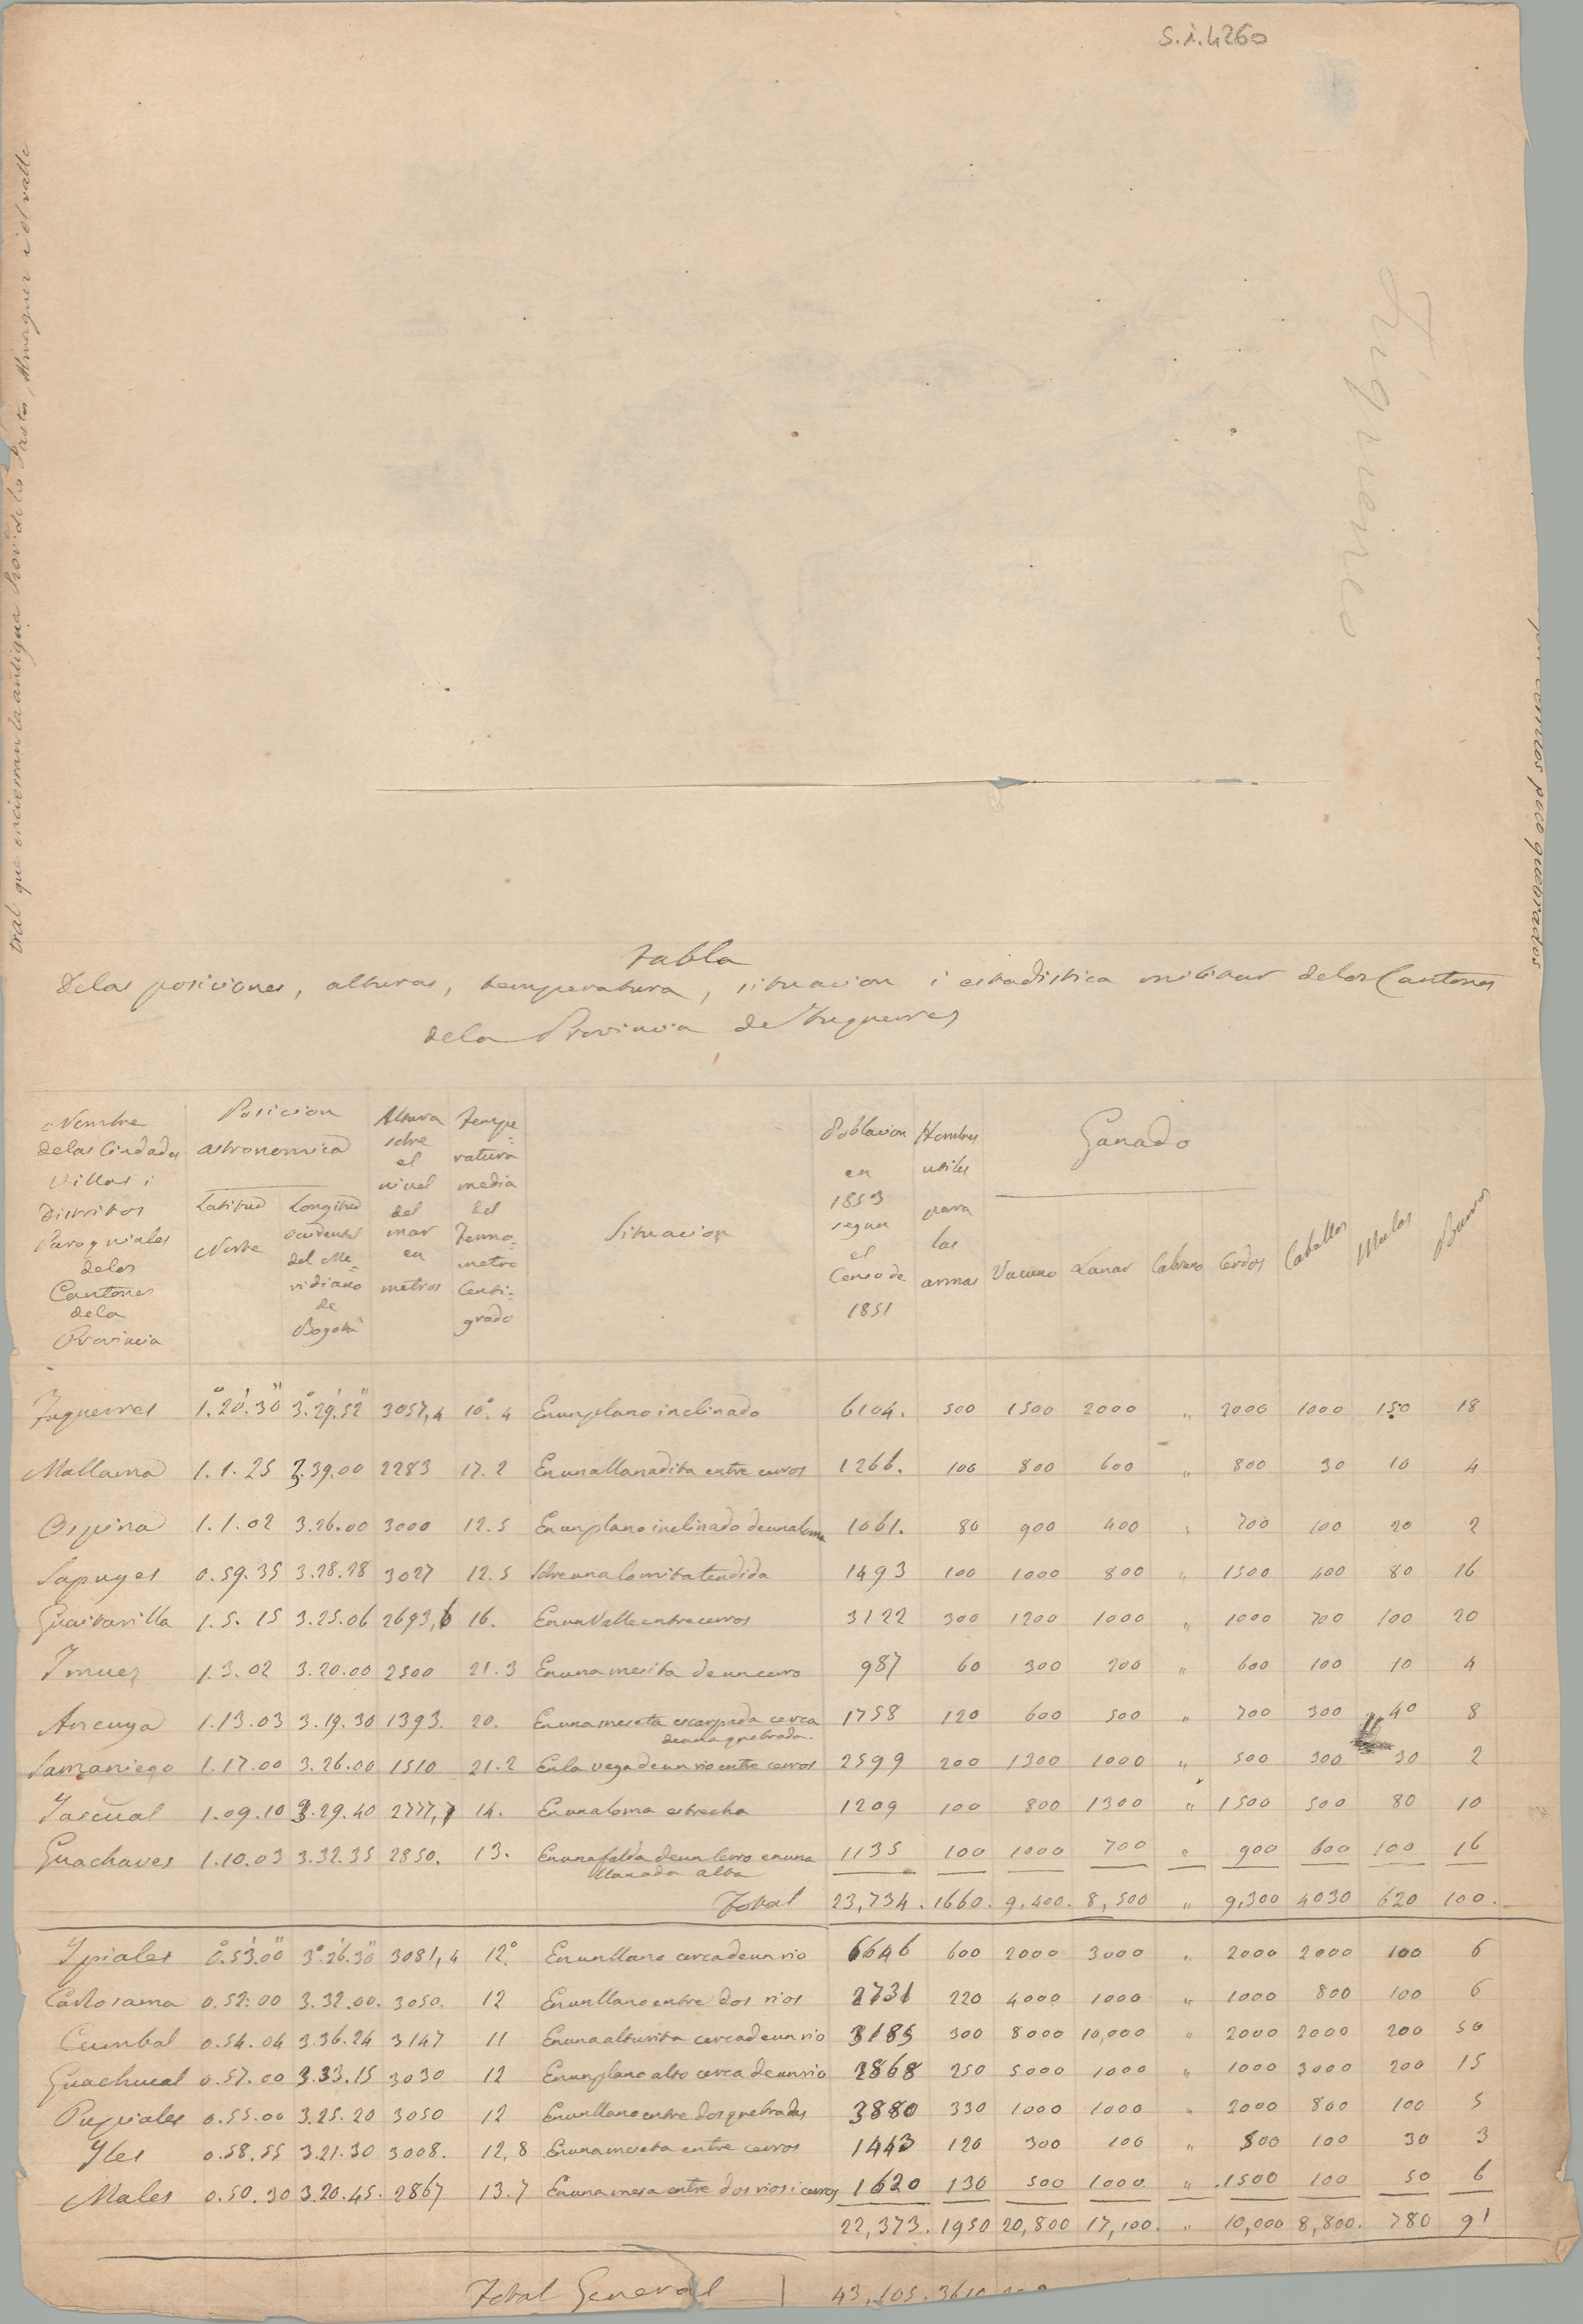 S.i.4260
Túquerres
tral que encierran la antigua Provª de los Pastos, Almaguer i el valle
poco quebrados
Tabla
De las posiciones, alturas, temperatura, situacion i estadistica militar de los Cantones
de la Provincia de Tuquerres
Nombre de las Ciudades Villas i Distritos Paroquiales de los Cantones de la Provincia
Posicion astronomica
Latitud Norte
Longitud occidental del Meridiano de Bogotá
Altura sobre el nivel del mar en metros
Tempe=ratura media del Termo=metro Centi=grado
Situacion
Poblacion en 1853 segun el Censo de 1851
Hombres utiles para las armas
Ganado
Vacuno Lanar Cabruno Cerdos
Caballos
Mulas
Burros
Tuquerres 1.°20.'30" 3.°29.'52" 3057,4 10.°4 En un plano inclinado 6104. 500 1500 2000 " 2000 1000 150 18
Mallama 1.1.25 3.39.00 2283 17.2 En una llanadita entre cerros 1266. 100 800 600 " 800 30 10 4
Ospina 1.1.02 3.26.00 3000 12.5 En un plano inclinado de una loma 1061. 80 900 400 " 700 100 20 2
Sapuyes 0.59.35 3.28.28 3027 12.5 Sobre una lomita tendida 1493 100 1000 800 " 1500 400 80 16
Guaitarilla 1.5.15 3.25.06 2693,6 16. En un Valle entre cerros 3122 300 1200 1000 " 1000 700 100 20
Imues 1.3.02 3.20.00 2500 21.3 En una mesita de un cerro 987 60 300 200 " 600 100 10 4
Ancuya 1.13.03 3.19.30 1393. 20. En una meseta escarpada cerca de una quebrada. 1758 120 600 500 " 700 300 40 8
Samaniego 1.17.00 3.26.00 1510 21.2 En la vega de un rio entre cerros 2599 200 1300 1000 " 500 300 30 2
Yascual 1.09.10 3.29.40 2777,7 14. En una loma estrecha 1209 100 800 1300 " 1500 500 80 10
Guachaves 1.10.03 3.32.35 2850. 13. En una falda de un Cerro en una llanada alta 1135 100 1000 700 " 900 600 100 16
Total 23,734. 1660. 9,400. 8,500 " 9,300 4030 620 100.
Ypiales 0.°53.'00" 3.°26.'30" 3081,4 12.° En un llano cerca de un rio 6646 600 2000 3000 " 2000 2000 100 6
Carlosama 0.52.00 3.32.00. 3050. 12 En un llano entre dos rios 2731 220 4000 1000 " 1000 800 100 6
Cumbal 0.54.04 3.36.24 3147 11 En una alturita cerca de un rio 3185 300 8000 10,000 " 2000 2000 200 50
Guachucal 0.57.00 3.33.15 3030 12 En un plano alto cerca de un rio 2868 250 5000 1000 " 1000 3000 200 15
Pupiales 0.55.00 3.25.20 3050 12 En un llano entre dos quebradas 3880 330 1000 1000 " 2000 800 100 5
Yles 0.58.55 3.21.30 3008. 12,8 En una meseta entre cerros 1443 120 300 100 " 500 100 30 3
Males 0.50.30 3.20.45. 2867 13.7 En una mesa entre dos rios i cerros 1620 130 500 1000 " 1500 100 50 6
22,373. 1950 20,800 17,100. " 10,000 8,800. 780 91
Total General 43,105.